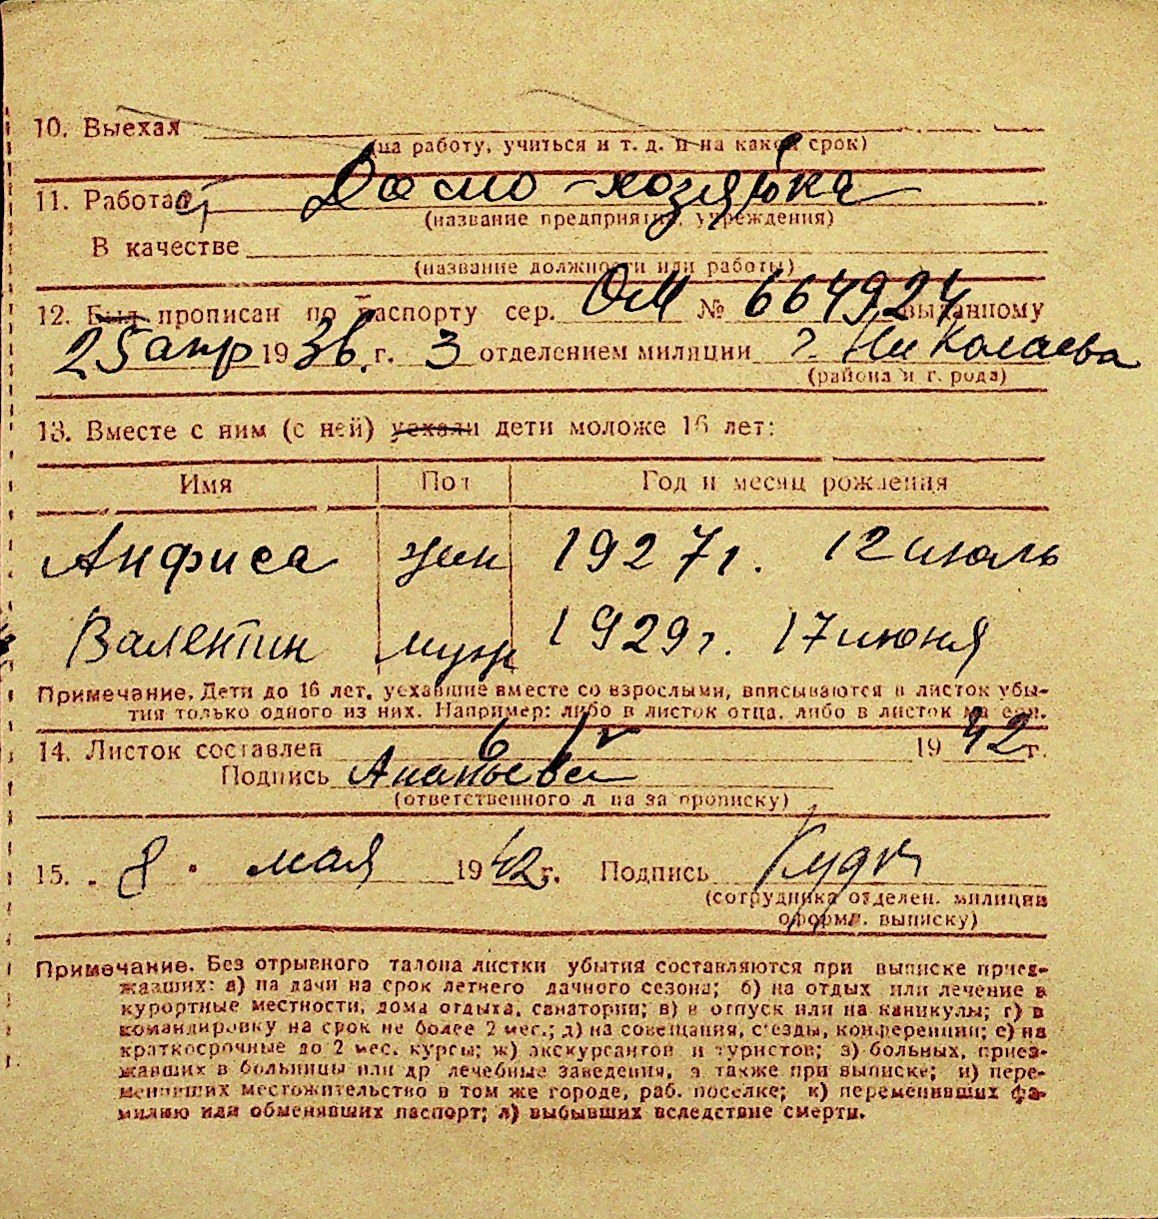 10. Выехал
(на работу, учиться и т. д. и на какой срок)
11. Работает Домо-хозяйка
(название предприятия, учреждения)
В качестве
(название должности или работы)
12. Был прописан по паспорту сер. ОМ № 664924 выданному
25 апр 1936. г. 3 отделением милиции г. Николаева
(района и г. рода)
13. Вместе с ним (с ней) уехали дети моложе 16 лет:
Имя Пол Год и месяц рождения
Анфиса жен 1927 г. 12 июль
Валентин муж 1929 г. 17 июня
Примечание. Дети до 16 лет, уехавшие вместе со взрослыми, вписываются в листок убы-
тия только одного из них. Например: либо в листок отца, либо в листок ма ери.
14. Листок составлен 6/V 1942г.
Подпись Ананьева
(ответственного л ца за прописку)
15. 8 мая 1942 г. Подпись
(сотрудника отделен. милиции
оформл. выписку)
Примечание. Без отрывного талона листки убытия составляются при выписке приез-
жавших: а) на дачи на срок летнего дачного сезона; б) на отдых или лечение в
курортные местности, дома отдыха, санатории; в) в отпуск или на каникулы; г) в
командировку на срок не более 2 мес.; д) на совещания, с'езды, конференции; е) на
краткосрочные до 2 мес. курсы; ж) экскурсантов и туристов; з) больных, приез-
жавших в больницы или др лечебные заведения, а также при выписке; и) пере-
менивших местожительство в том же городе, раб. поселке; к) переменивших фа-
милию или обменявших паспорт; л) выбывших вследствие смерти.